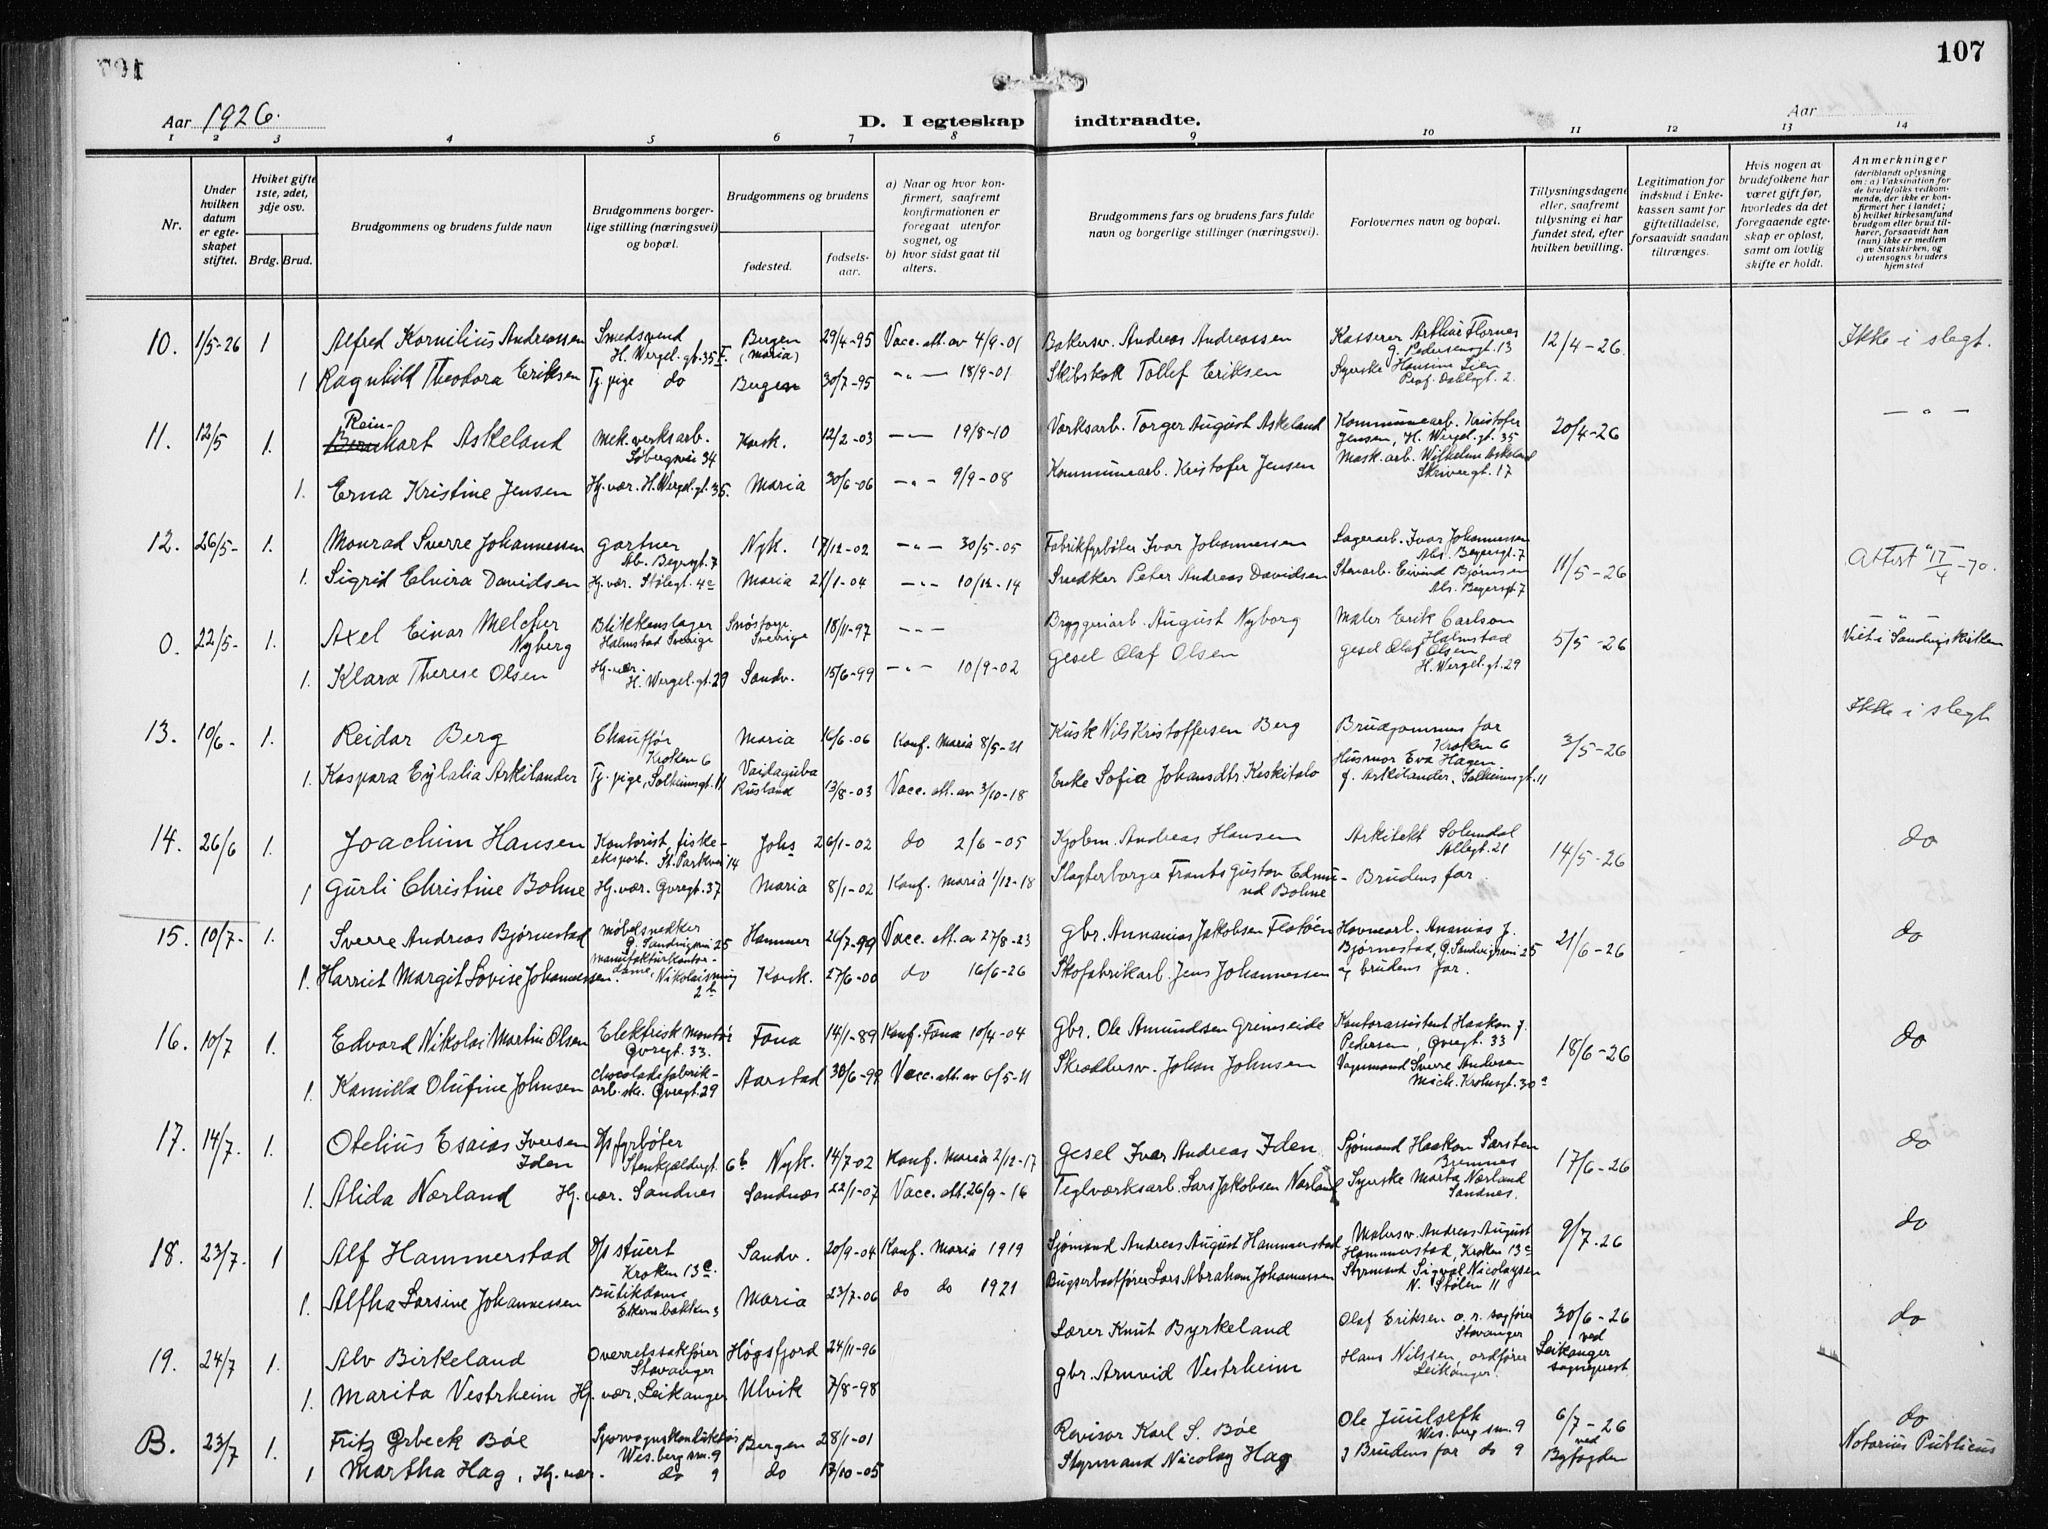 107
Aar 1926.
D. I egteskap indtraadte.
Aar
1 2 3 4 5 6 7 8 9. 10 11 12 13 14
Nr.
Under hvilken datum er egteskapet stiftet.
Hviket gifte 1ste, 2det, 3dje osv.
Brdg. Brud.
Brudgommens og brudens fulde navn
Brudgommens borgerlige stilling (næringsvei) og bopæl.
Brudgommens og brudens
fødested.
fødselsaar.
a) Naar og hvor konfirmert, saafremt konfirmationen er foregaat utenfor sognet, og
b) hvor sidst gaat til alters.
Brudgommens fars og brudens fars fulde navn og borgerlige stillinger (næringsvei).
Forlovernes navn og bopæl.
Tillysningsdagene eller, saafremt tillysning ei har fundet sted, efter hvilken bevilling.
Legitimation for indskud i Enkekassen samt for giftetilladelse, forsaavidt saadan tiltrænges.
Hvis nogen av brudefolkene har været gift før, hvorledes da det foregaaende egteskap er opløst, samt om lovlig skifte er holdt.
Anmerkninger (deriblandt oplysning om: a) Vaksination for de brudefolks vedkommende, der ikke er konfirmert her i landet; b) hvilket kirkesamfund brudgom eller brud tilhører, forsaavidt han (hun) ikke er medlem av Statskirken, og c) utensogns bruders hjemsted
10. 1/5-26 1 Alfred Kornilius Andreassen Smedsvend H. Wergel. gt. 35 Bergen (Maria) 29/4-95 Vacc. att. av 4/9-01 Bakersv. Andreas Andreassen Kasserer Arthur Flornes G. Pedersensgt. 13 12/4-26. Ikke i slegt.
1 Ragnhild Theodora Eriksen Tj. pige do Bergen 30/7-95 -"- 18/9-01 Skibskok Tollef Eriksen Syerske Hansine Lien Prof. Dahlsgt. 2.
11. 12/5 1. Reinhart Askeland Mek. verksarb. Søbergsvei 34 Korsk. 12/2-03 -"- 19/8-10 Værksarb. Torger August Askeland Kommunearb. Kristofer Jensen, H. Wergel. gt. 35 20/4-26 -"-
1. Erna Kristine Jensen Hj. vær. H. Wergel. gt. 35. Maria 30/6-06 -"- 9/9-08 Kommunearb. Kristofer Jensen Mask. arb. Wilhelm Askeland Skrivergt. 17
12. 26/5- 1. Monrad Sverre Johannessen Gartner Ab. Begergt. 7 Nyk. 17/12-02 -"- 30/5-05 Fabrikfyrbøter Ivar Johannessen Lagerarb. Ivar Johannessen Abs. Begergt. 7 11/5-26 Attest 17/4-70.
1. Sigrid Elvira Davidsen Hj. vær. Stølegt. 4c Maria 21/1-04 -"- 10/12-14 Snedker Peter Andreas Davidsen Stenarb. Eivind Bjørnsen Abs. Begergt 7
0. 22/5- 1. Axel Einar Melcher Nyberg Blikkenslager Halmstad Sverige Sverige 18/11-97 -"- Bryggeriarb. August Nyborg Maler Erik Carlson Halmstad 5/5-26 -"- Viet i Sandvigskirken
1. Klara Therese Olsen Hj. vær. H. Wergel. gt. 29 Sandv. 15/6-99 -"- 10/9-02 Gesel Olaf Olsen Gesel Olaf Olsen H. Wergel. gt. 29
13. 10/6- 1. Reidar Berg Chauffør Kroken 6 Maria 16/6-06 Konf. Maria 8/5-21 Kusk Nils Kristoffersen Berg Brudgommens far Kroken 6 3/5-26 Ikke i slegt
1. Kaspara Eylalia Arkilander Tj. pige, Solheimsgt. 11 Vaidaguba Rusland 13/8-03 Vacc. att. av 3/10-18 Enke Sofia Johansdtr Keskitalo Husmor Eva Hagen f. Arkilander, Solheimsgt. 11
14. 26/6 1. Joachim Hansen Kontorist, fiskeeksport. St. Parkvei 14 Johs 26/1-02 do 2/6-05 Kjøbm. Andreas Hansen Arkitekt Solemdal Allegt. 21 14/5-26 do
1 Gurli Christine Bohne Hj. vær. Øvregt. 37 Maria 8/1-02 Konf. Maria 1/12-18 Slagterborger Frants Gustav Edmund Bohne Brudens far
15. 10/7- 1. Sverre Andreas Bjørnestad Møbelsnedker G. Sandvigsvei 25 Hammer 26/7-99 Vacc. att. av 27/8-23 Gbr. Annanias Jakobsen Flatøen Havnearb. Ananias J. Bjørnestad, G. Sandvigsvei 25 21/6-26 do
1. Harriet Margit Lovise Johannessen. Manufakturkontordame, Nikolaismug 2b Korsk. 27/6-00 do 16/6-26 Skofabrikarb. Jens Johannessen og brudens far.
16. 10/7 1. Edvard Nikolai Martin Olsen Elektrisk montør Øvregt. 33. Fana 14/1-89 Konf. Fana 10/4-04 Gbr. Ole Amundsen Grimseide Kontorassistent Haakon J. Pedersen, Øvregt. 33 18/6-26 do
1. Kamilla Olufine Johnsen Chocoladefabrikarb.ske. Øvregt. 29 Aarstad 30/6-99 Vacc. att. av 6/5-11 Skræddersv. Johan Johnsen Vognmand Sverre Andersen Mich. Krohnsgt. 30a
17. 14/7. 1. Otelius Esaias Iversen Iden D/s fyrbøter Stenkjældergt. 6b Nyk. 14/7-02 Konf. Maria 2/12-17 Gesel Ivar Andreas Iden Sjømand Haakon Larsten Bremnes 17/6-26 do
1. Alida Nærland Hj. vær. Sandnes Sandnæs 22/1-07 Vacc. att. 26/9-16 Teglværksarb. Lars Jakobsen Nærland Syerske Marta Nærland Sandnes.
18. 23/7. 1 Alf Hammerstad D/s stuert Kroken 13c Sandv. 20/9-04 Konf. Maria 1919 Sjømand Andreas August Hammerstad Malersv. Andreas August Hammerstad, Kroken 13c 9/7-26 do
1. Alfha Larsine Johannessen Butikdame 3 Maria 23/7-06 do do 1921 Bugserbaatfører Lars Abraham Johannessen Styrmand Sigval Nicolaysen N. Stølen 11
19. 24/7 1. Alv Birkeland Overretssakfører Stavanger Høgsfjord 24/11-96 Lærer Knut Byrkeland Olaf Eriksen o. r. sagfører Stavanger 30/6-26 ved Leikanger sogneprest. do
1. Marita Vestrheim Hj. vær, Leikanger Ulvik 7/8-98 Gbr. Arnvid Vestrheim Hans Nilssen ordfører Leikanger.
B. 23/7 1. Fritz Ørbeck Bøe Sporvognskonduktør Wes. berg sm. 9 Bergen 28/1-01 Revisor Karl S. Bøe Ole Juulseth Wes. berg sm. 9 6/7-26 ved Byfogden do Notarius Publicus
1 Martha Hag, Hj. vær. do 9 do 13/10-05 Styrmand Nicolay Hag Brudens far do 9